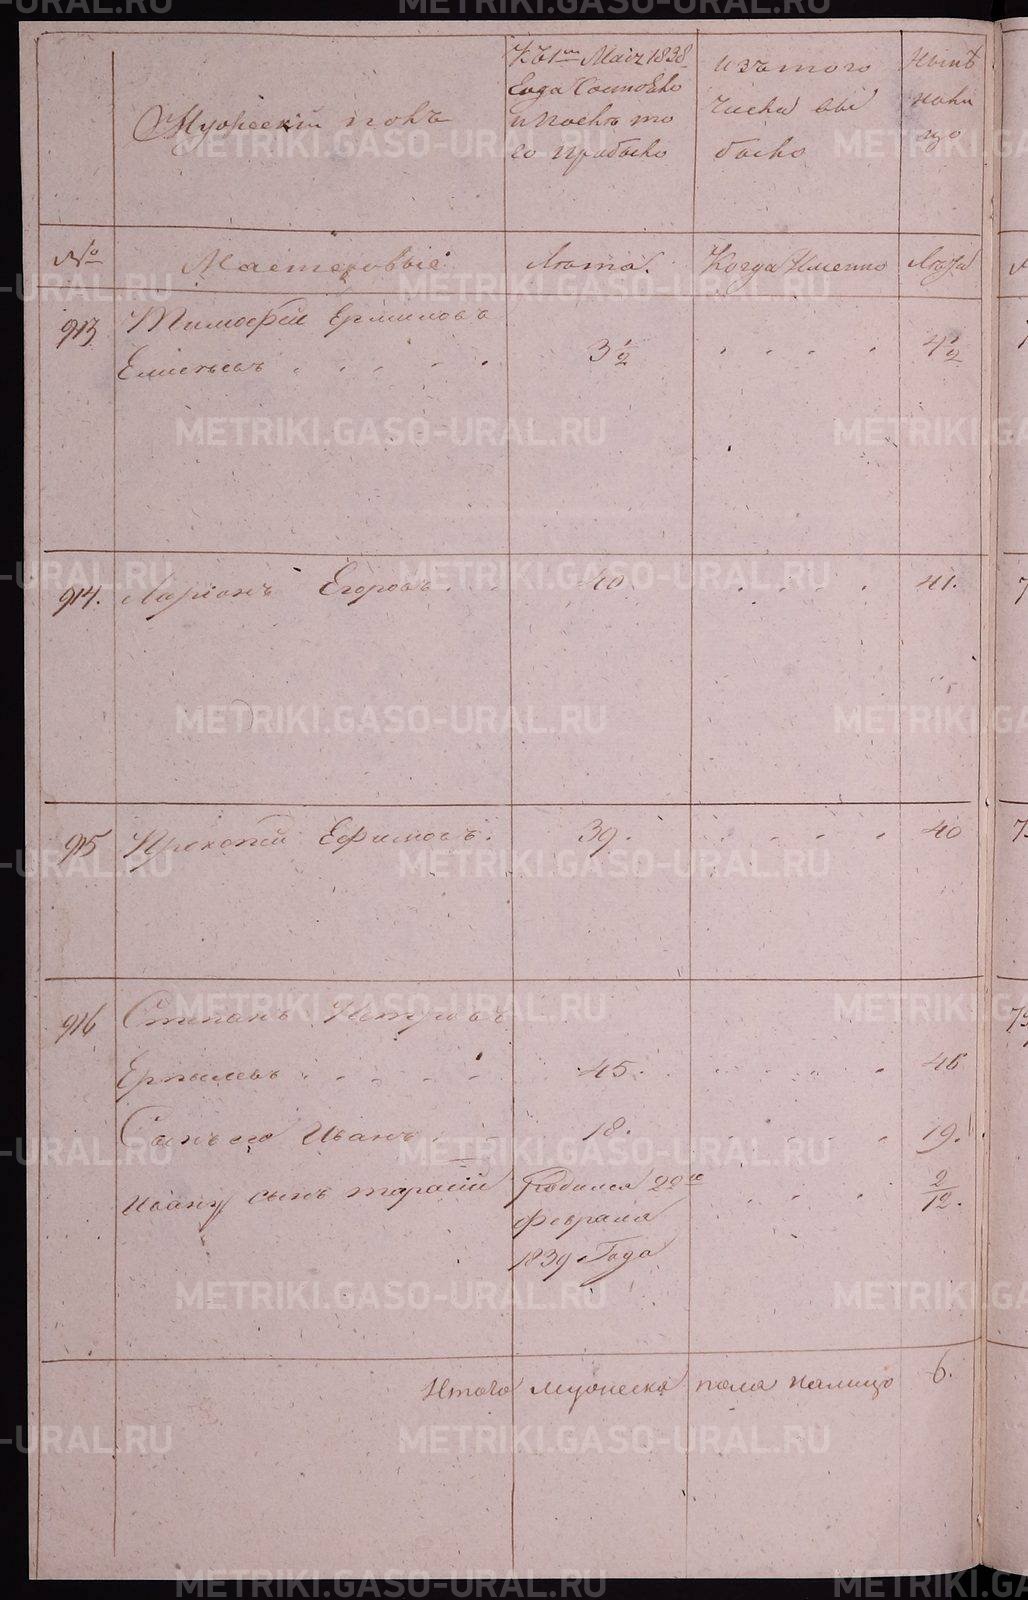 Мужескій полъ
Къ 1му Маія 1838
года Состояло
и послѣ то
го прибыло
изъ того
числа вы
было
Нынѣ
нали
цо
№
Мастеровые
Лѣта.
Когда Именно
Лѣта
913
Тимофей Ермиловъ
Елисѣевъ
3 1/2
4 1/2
914.
Ларіонъ Егоровъ
40.
41.
915
Прокопей Ефимовъ.
39.
40
916
Степанъ Петровъ
45.
46
Сынъ его Иванъ
18.
19.
Ивану сынъ тарасій
Родился 22го
февраля
1839 Года
2/12.
Итого мужеска пола налицо
6.
METRIKI.GASO-URAL.RU